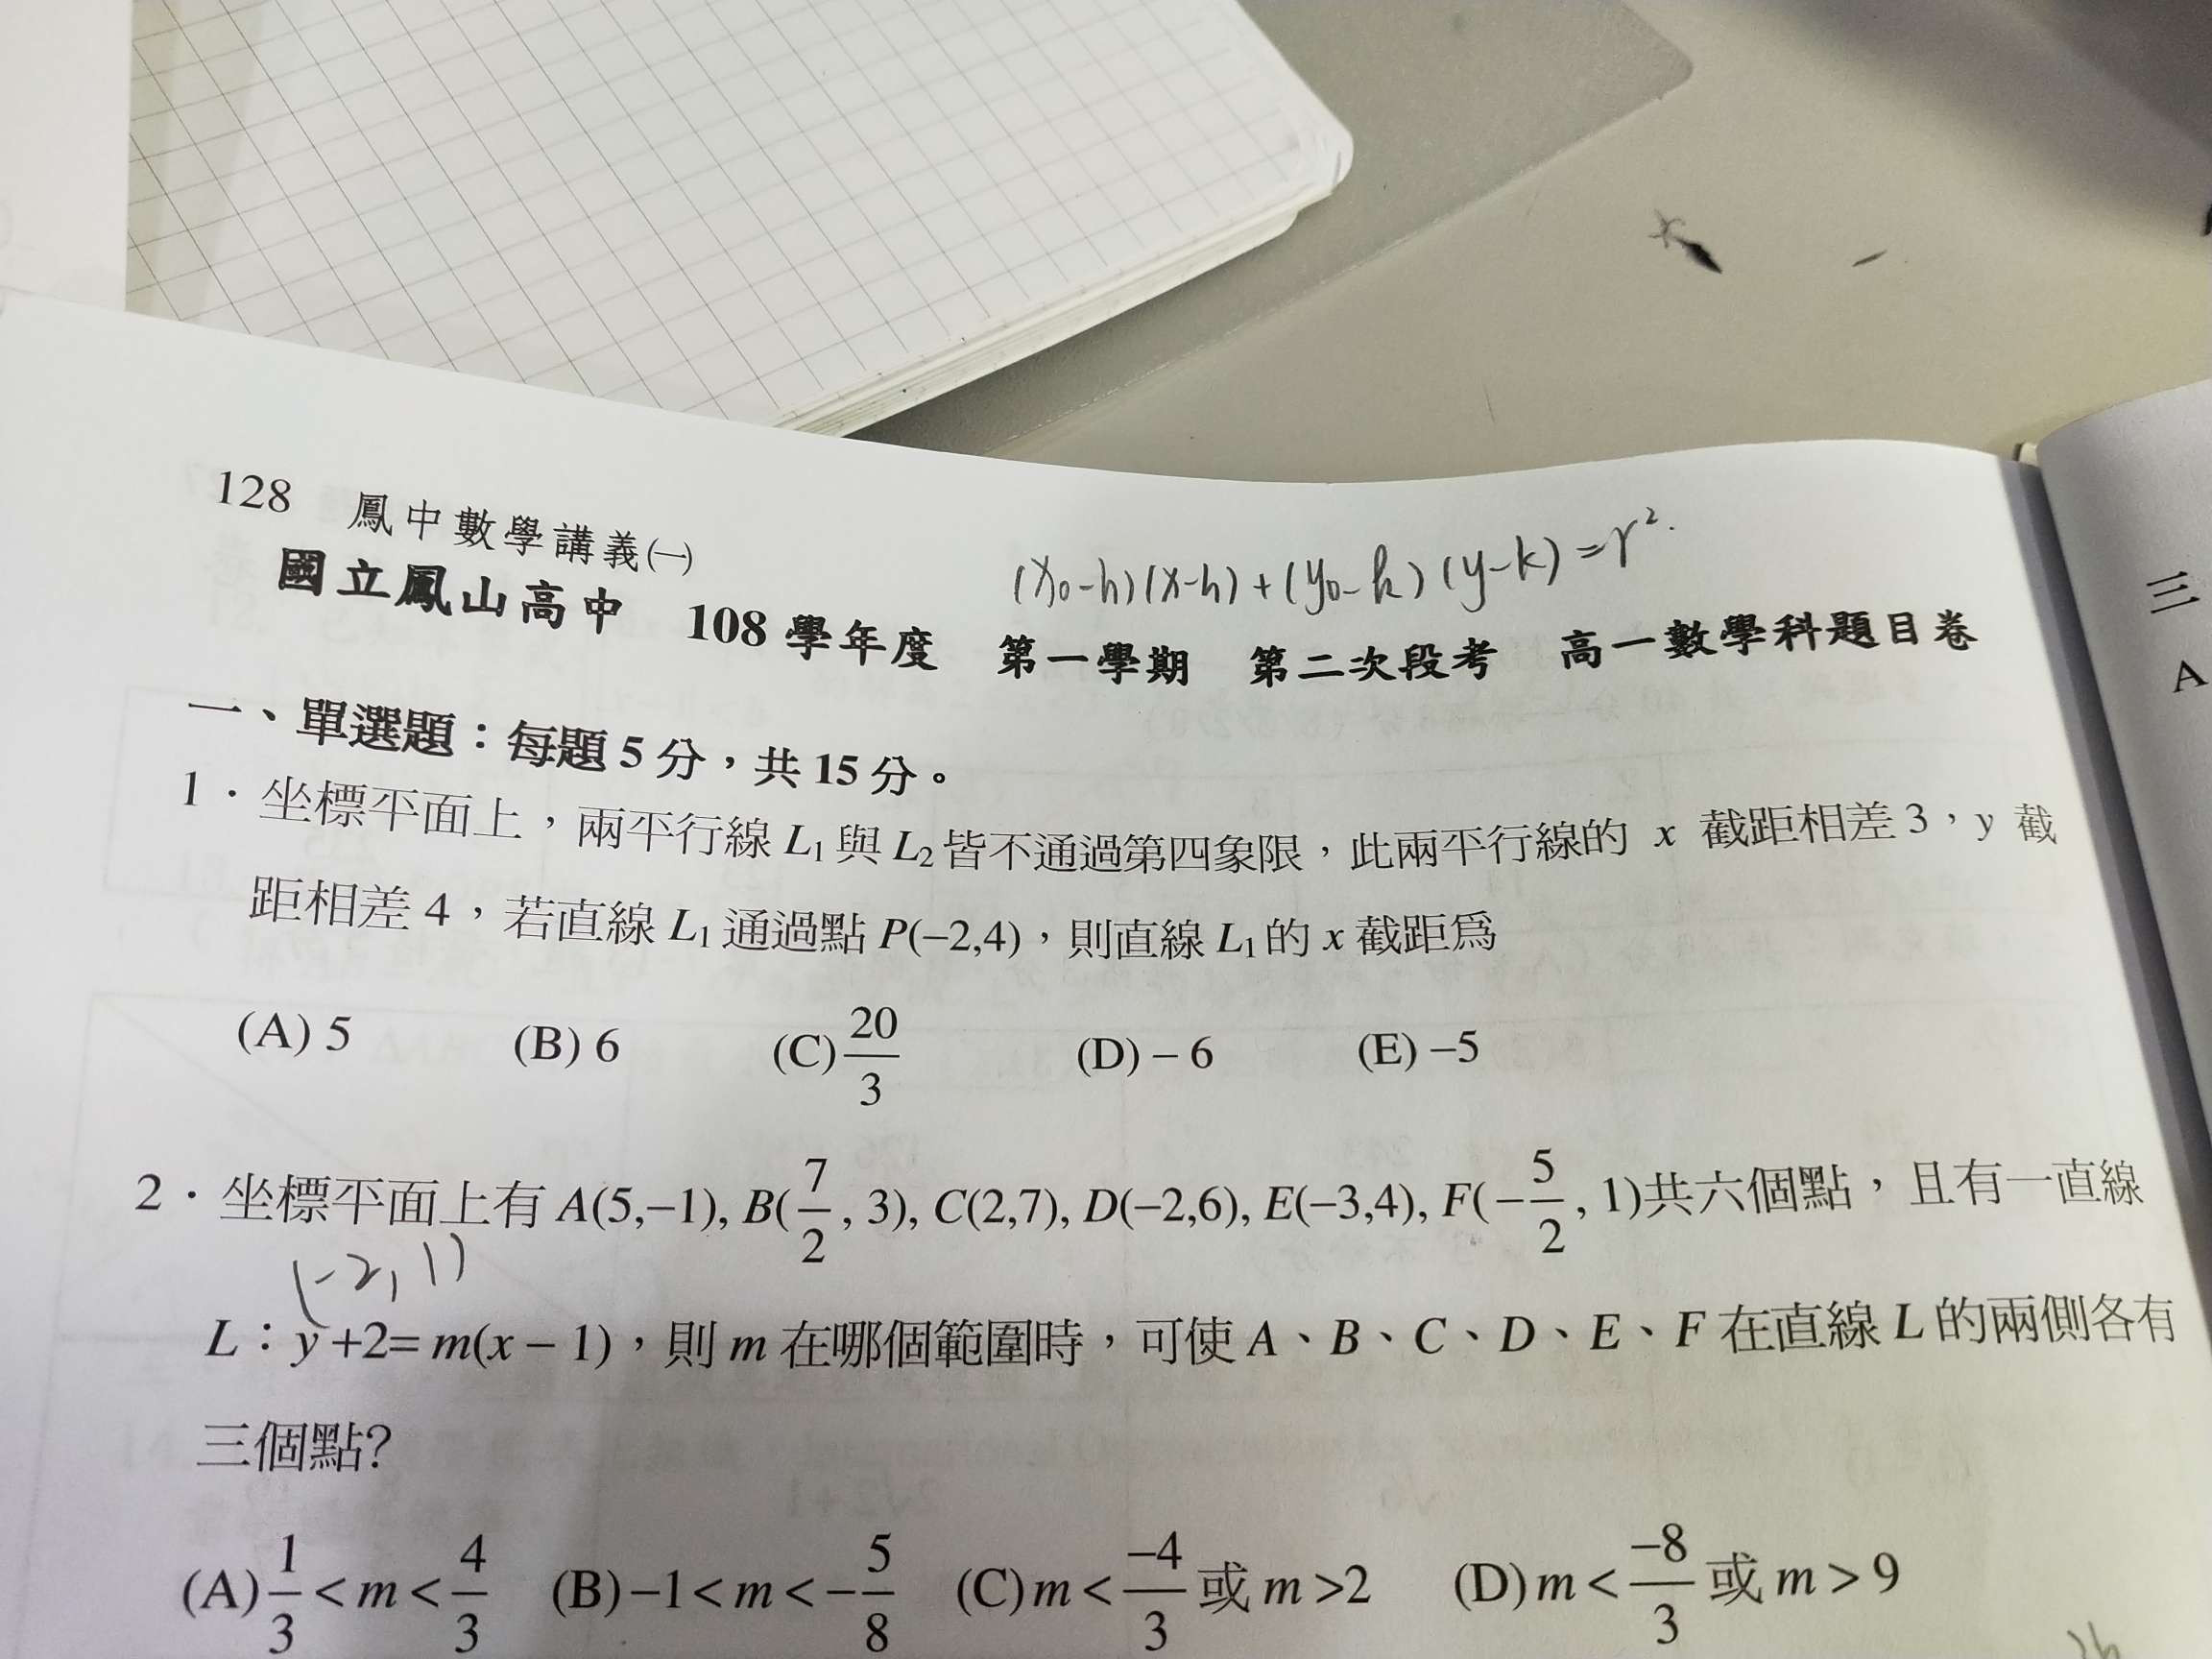 128 鳳中數學講義㈠
(x₀-h)(x-h)+(y₀-k)(y-k)=r².
國立鳳山高中 108 學年度 第一學期 第二次段考 高一數學科題目卷
一、單選題：每題 5 分，共 15 分。
1．坐標平面上，兩平行線 L₁ 與 L₂ 皆不通過第四象限，此兩平行線的 x 截距相差 3，y 截
距相差 4，若直線 L₁ 通過點 P(−2,4)，則直線 L₁ 的 x 截距為
(A) 5 (B) 6 (C) 20/3 (D) − 6 (E) −5
2．坐標平面上有 A(5,−1), B(7/2, 3), C(2,7), D(−2,6), E(−3,4), F(−5/2, 1)共六個點，且有一直線
(-2, 1)
L：y +2= m(x − 1)，則 m 在哪個範圍時，可使 A、B、C、D、E、F 在直線 L 的兩側各有
三個點?
(A) 1/3 < m < 4/3 (B) −1 < m < −5/8 (C) m < −4/3 或 m >2 (D) m < −8/3 或 m > 9
三
A